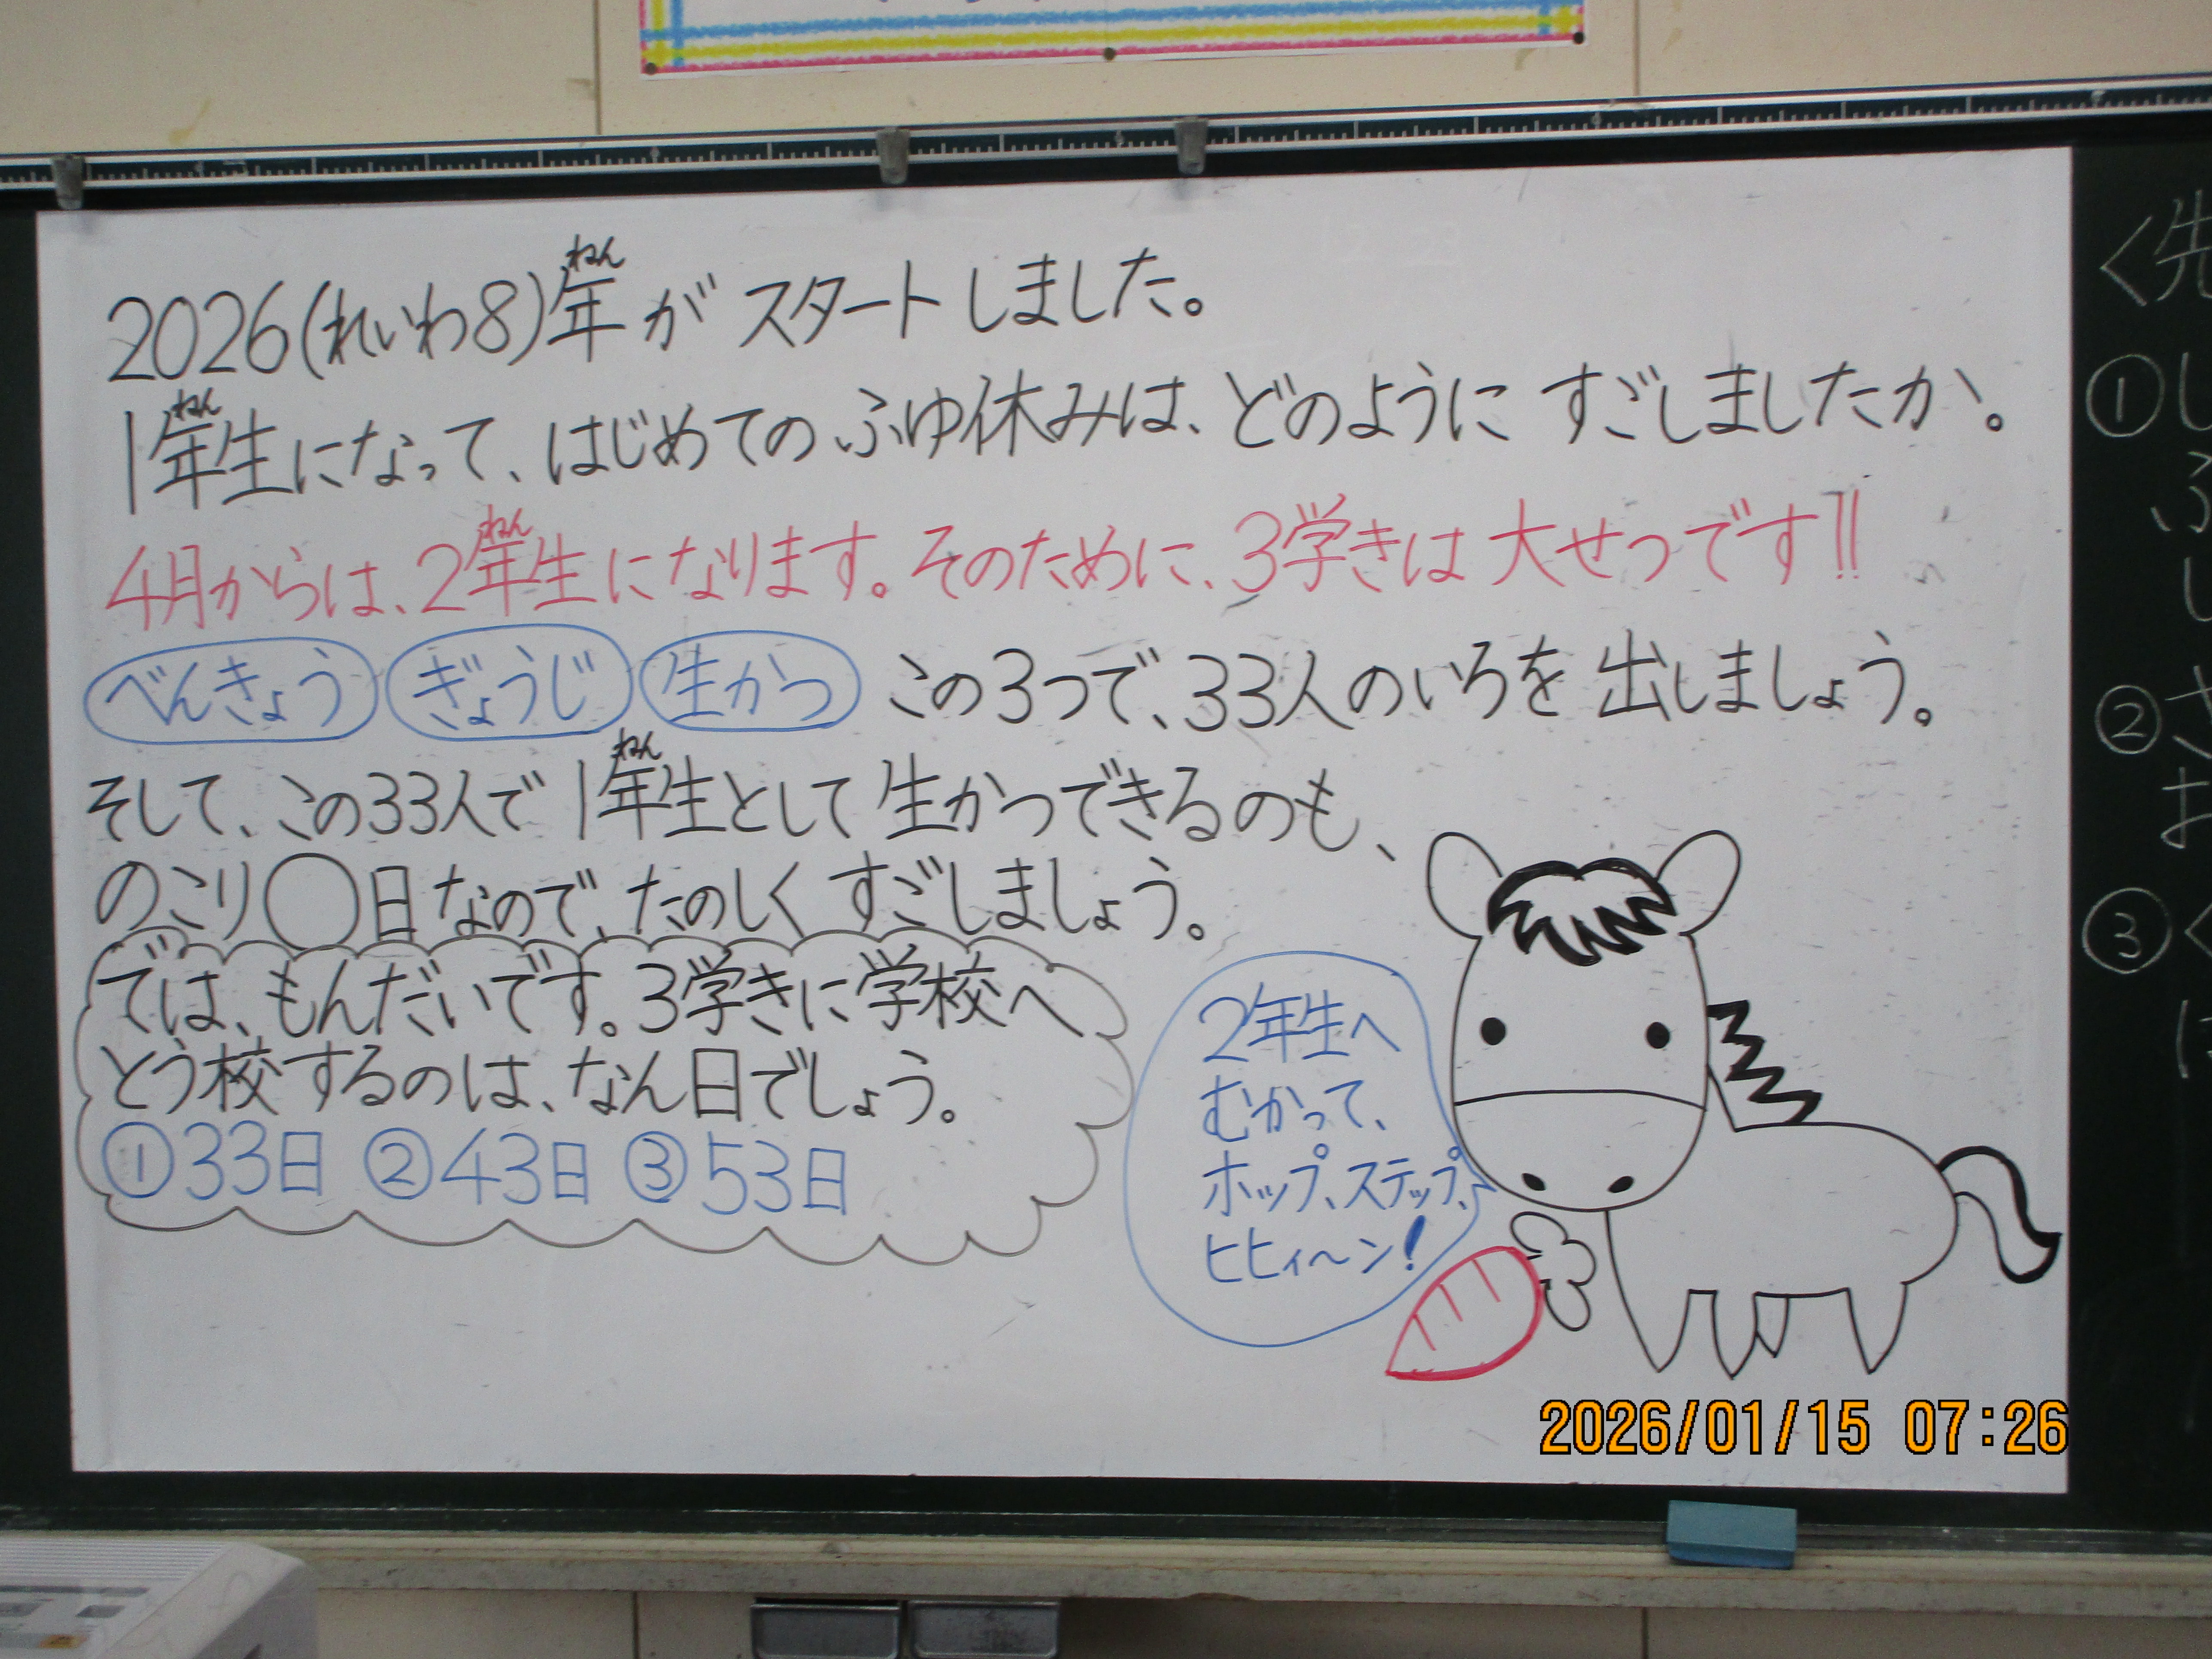 2026(れいわ8)年がスタートしました。
1年生になって、はじめてのふゆ休みは、どのようにすごしましたか。
4月からは、2年生になります。そのために、3学きは大せつです!!
べんきょう ぎょうじ 生かつ この3つで、33人のいろを出しましょう。
そして、この33人で1年生として生かつできるのも、
のこり◯日なので、たのしくすごしましょう。
では、もんだいです。3学きに学校へ
とう校するのは、なん日でしょう。
①33日 ②43日 ③53日
2年生へ
むかって、
ホップ、ステップ、
ヒヒィ〜ン!
2026/01/15 07:26
<先
①し
ふ
し
②
お
③く